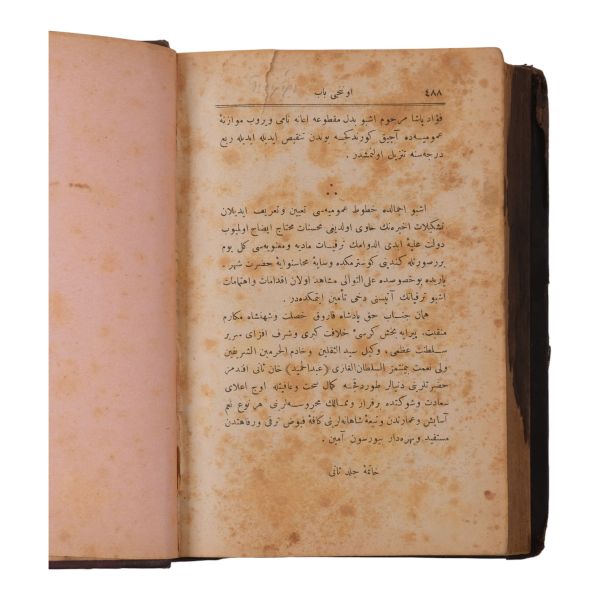 اوننجى باب
٤٨٨
فؤاد پاشا مرحوم اشبو بدل مقطوعه اعانه نامى ويروب موازنهٔ
عموميه‌ده آچيق كورندكجه بوندن تنقيص ايديله ايديله ربع
درجه‌سنه تنزيل اولنمشدر .
اشبو اجمالده خطوط عموميه‌سى تعيين وتعريف ايديلان
تشكيلات اخيره‌نك حاوى اولديغى محسنات محتاج ايضاح اولميوب
دولت عليهٔ ابدى الدوامك ترقيات ماديه ومعنويه‌سى كل يوم
بر صورتله كندينى كوسترمكده وسايهٔ محاسنوايهٔ حضرت شهر .
ياريده بوخصوصده على التوالى مشاهد اولان اقدامات واهتمامات
اشبو ترقياتك آتيسنى دخى تأمين ايتمكده‌در .
همان جناب حق پادشاه فاروق خصلت وشهنشاه مكارم
منقبت . پيرايه بخش كرسىٔ خلافت كبرى وشرف افزاى سرير
سلطنت عظمى ، وكيل سيد الثقلين وخادم الحرمين الشريفين
ولى نعمت بيمنتمز السلطان الغازى ( عبدالحميد ) خان ثانى افندمز
حضرتلرينى دنيالر طوردقجه كمال صحت وعافيتله اوج اعلاى
سعادت وشوكتده برقرار وممالك محروسه‌لرينى هر نوع نعم
آسايش وعمراندن وتبعهٔ شاهانه‌لرينى كافهٔ فيوض ترقى ورفاهتدن
مستفيد وبهره‌دار بيورسون آمين .
خاتمهٔ جلد ثانى